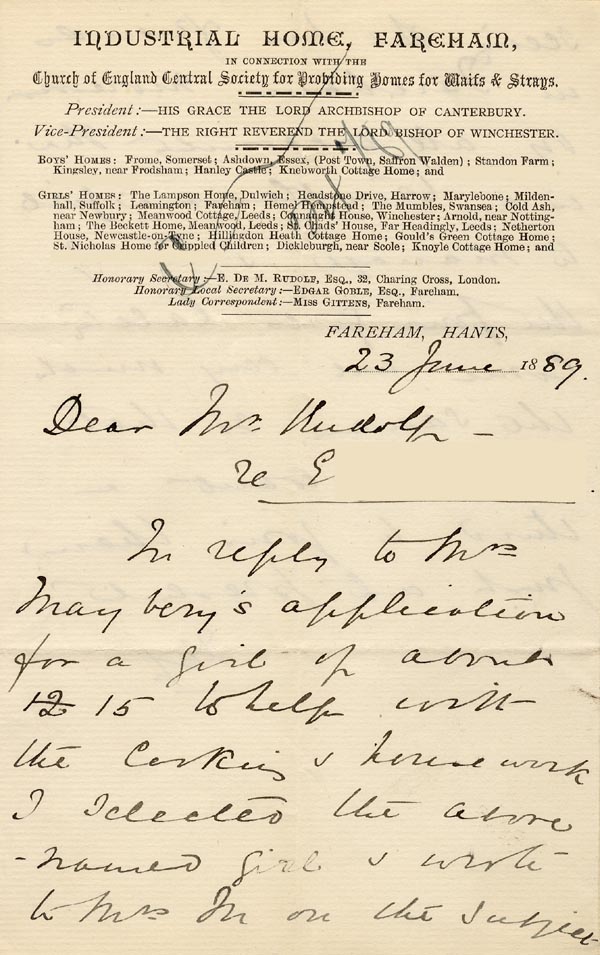 INDUSTRIAL HOME, FAREHAM,
IN CONNECTION WITH THE
Church of England Central Society for Providing Homes for Waifs & Strays.
President:—HIS GRACE THE LORD ARCHBISHOP OF CANTERBURY.
Vice-President:—THE RIGHT REVEREND THE LORD BISHOP OF WINCHESTER.
BOYS' HOMES: Frome, Somerset; Ashdown, Essex, (Post Town, Saffron Walden); Standon Farm;
Kingsley, near Frodsham; Hanley Castle; Knebworth Cottage Home; and
GIRLS' HOMES: The Lampson Home, Dulwich; Headstone Drive, Harrow; Marylebone; Milden-
hall, Suffolk; Leamington; Fareham; Hemel Hempstead; The Mumbles, Swansea; Cold Ash,
near Newbury; Meanwood Cottage, Leeds; Connaught House, Winchester; Arnold, near Notting-
ham; The Beckett Home, Meanwood, Leeds; St. Chads' House, Far Headingly, Leeds; Netherton
House, Newcastle-on-Tyne; Hillingdon Heath Cottage Home; Gould's Green Cottage Home;
St. Nicholas Home for Crippled Children; Dickleburgh, near Scole; Knoyle Cottage Home; and
Honorary Secretary:—E. DE M. RUDOLF, ESQ., 32, Charing Cross, London.
Honorary Local Secretary:—EDGAR GOBLE, ESQ., Fareham.
Lady Correspondent:—MISS GITTENS, Fareham.
FAREHAM, HANTS,
23 June 1889.
Dear Mr. Rudolf —
re E
In reply to Mrs
Maybery's application
for a girl of about
12 15 to help with
the Cooking & housework
I selected the above
-named girl & wrote
to Mrs M on the subject